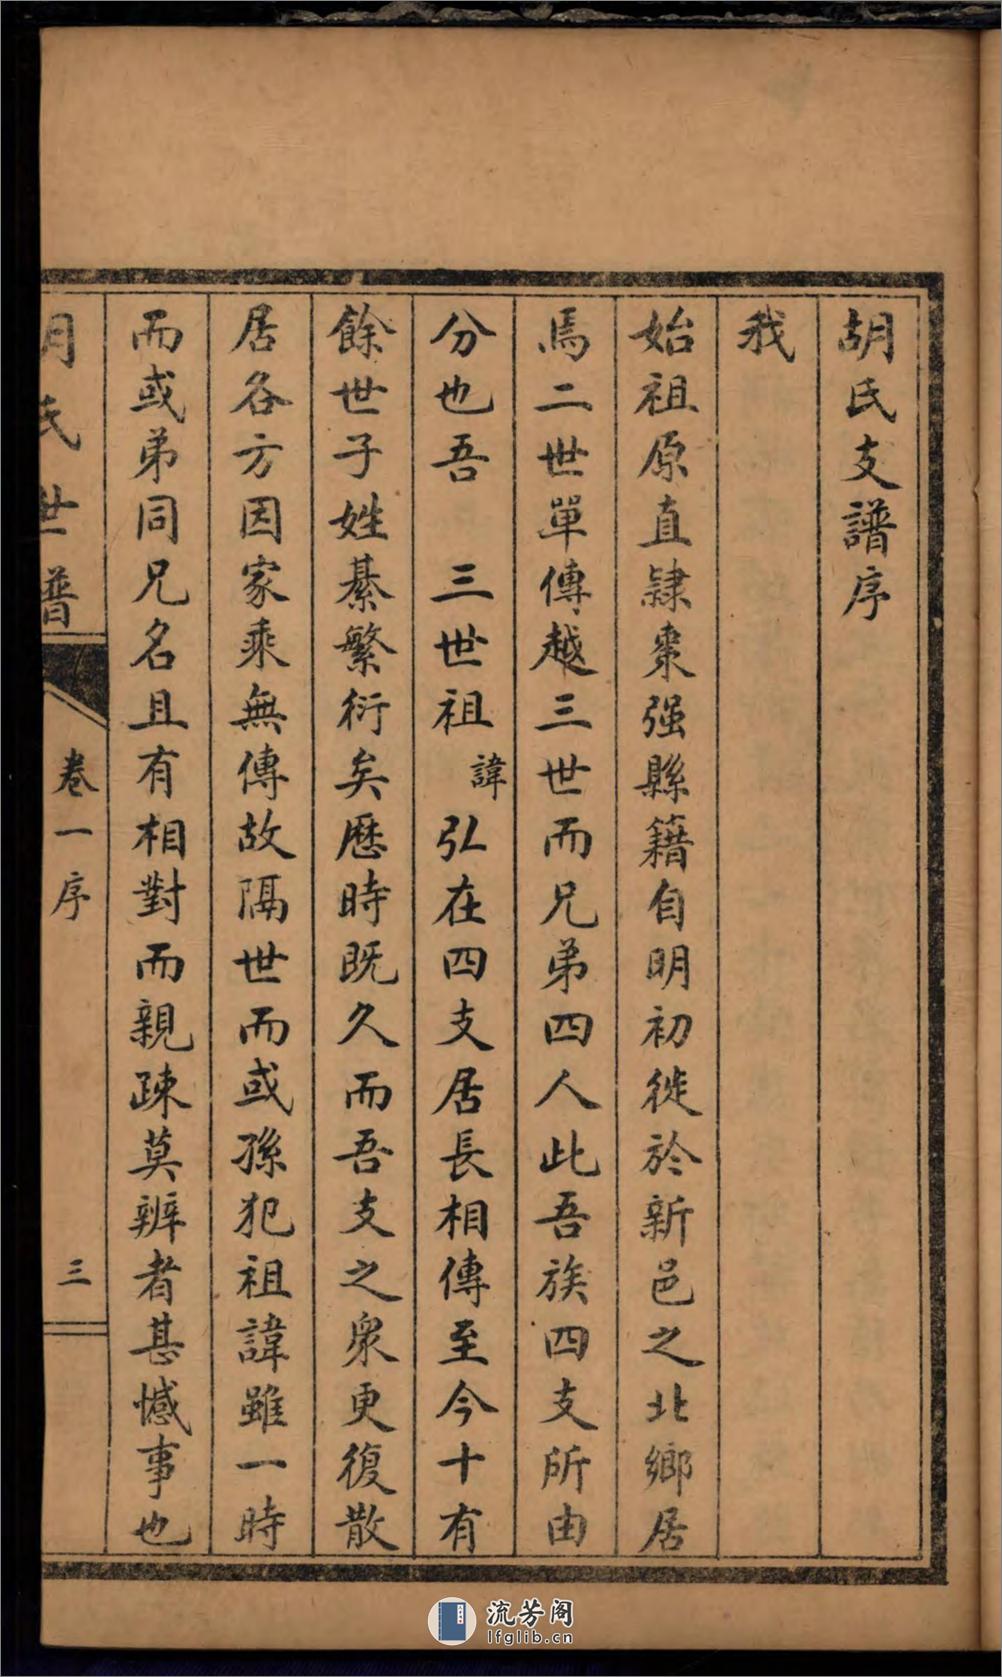 胡氏支譜序
我
始祖原直隸棗强縣籍自明初徙於新邑之北鄉居
焉二世單傳越三世而兄弟四人此吾族四支所由
分也吾 三世祖諱弘在四支居長相傳至今十有
餘世子姓綦繁衍矣歷時既久而吾支之衆更復散
居各方因家乘無傳故隔世而或孫犯祖諱雖一時
而或弟同兄名且有相對而親疎莫辨者甚憾事也
胡氏世譜 卷一序 三
流芳阁
lfglib.cn